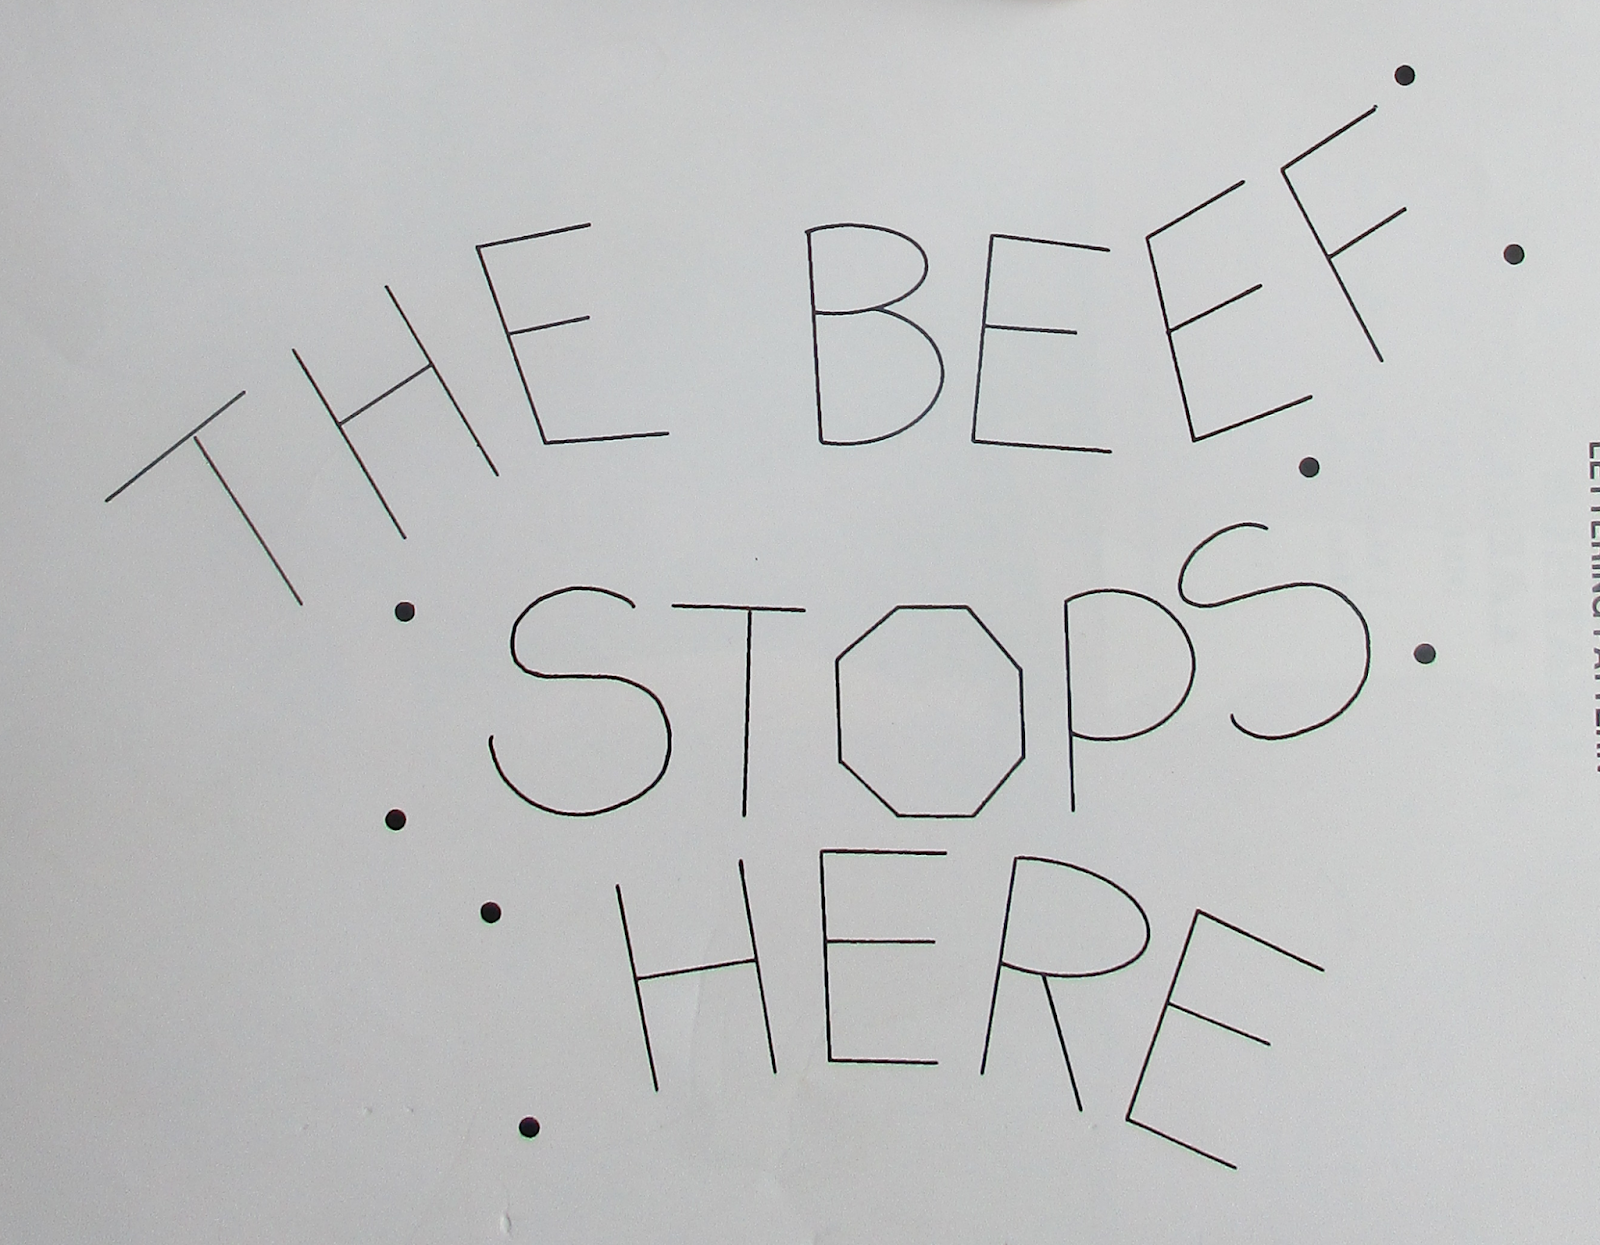 THE BEEF
STOPS
HERE
LETTERING PATTERN